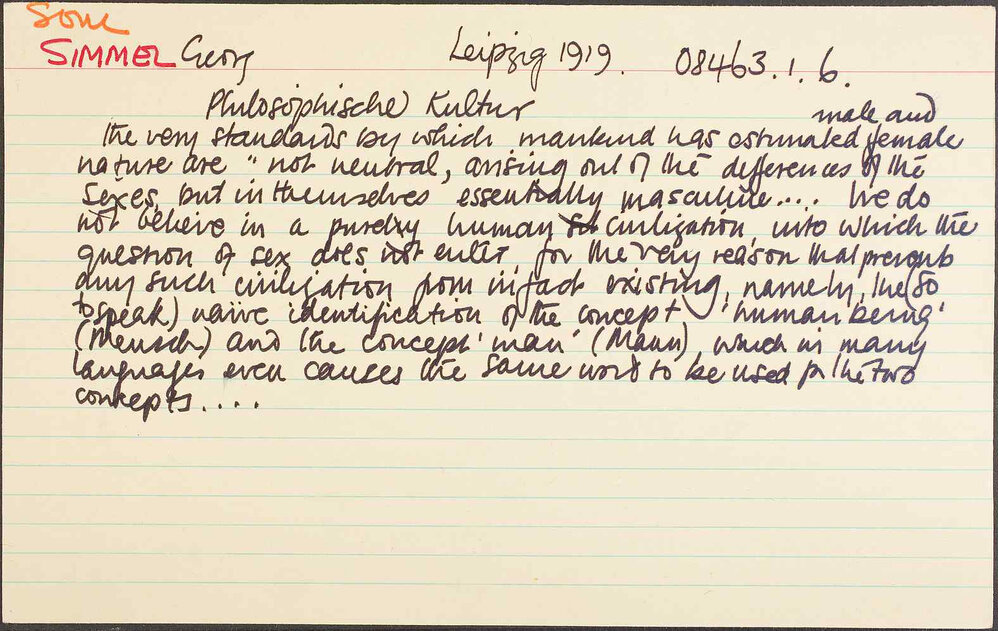 Some
SIMMEL Georg Leipzig 1919. 08463.i.6.
Philosophische Kultur
male and
The very standards by which mankind has estimated female
nature are "not neutral, arising out of the differences of the
sexes, but in themselves essentially masculine.... We do
not believe in a purely human civilization, into which the
question of sex does not enter, for the very reason that prevents
any such civilization from in fact existing, namely, the (so
to speak) naive identification of the concept 'human being'
(Mensch) and the concept 'man' (Mann), which in many
languages even causes the same word to be used for the two
concepts....